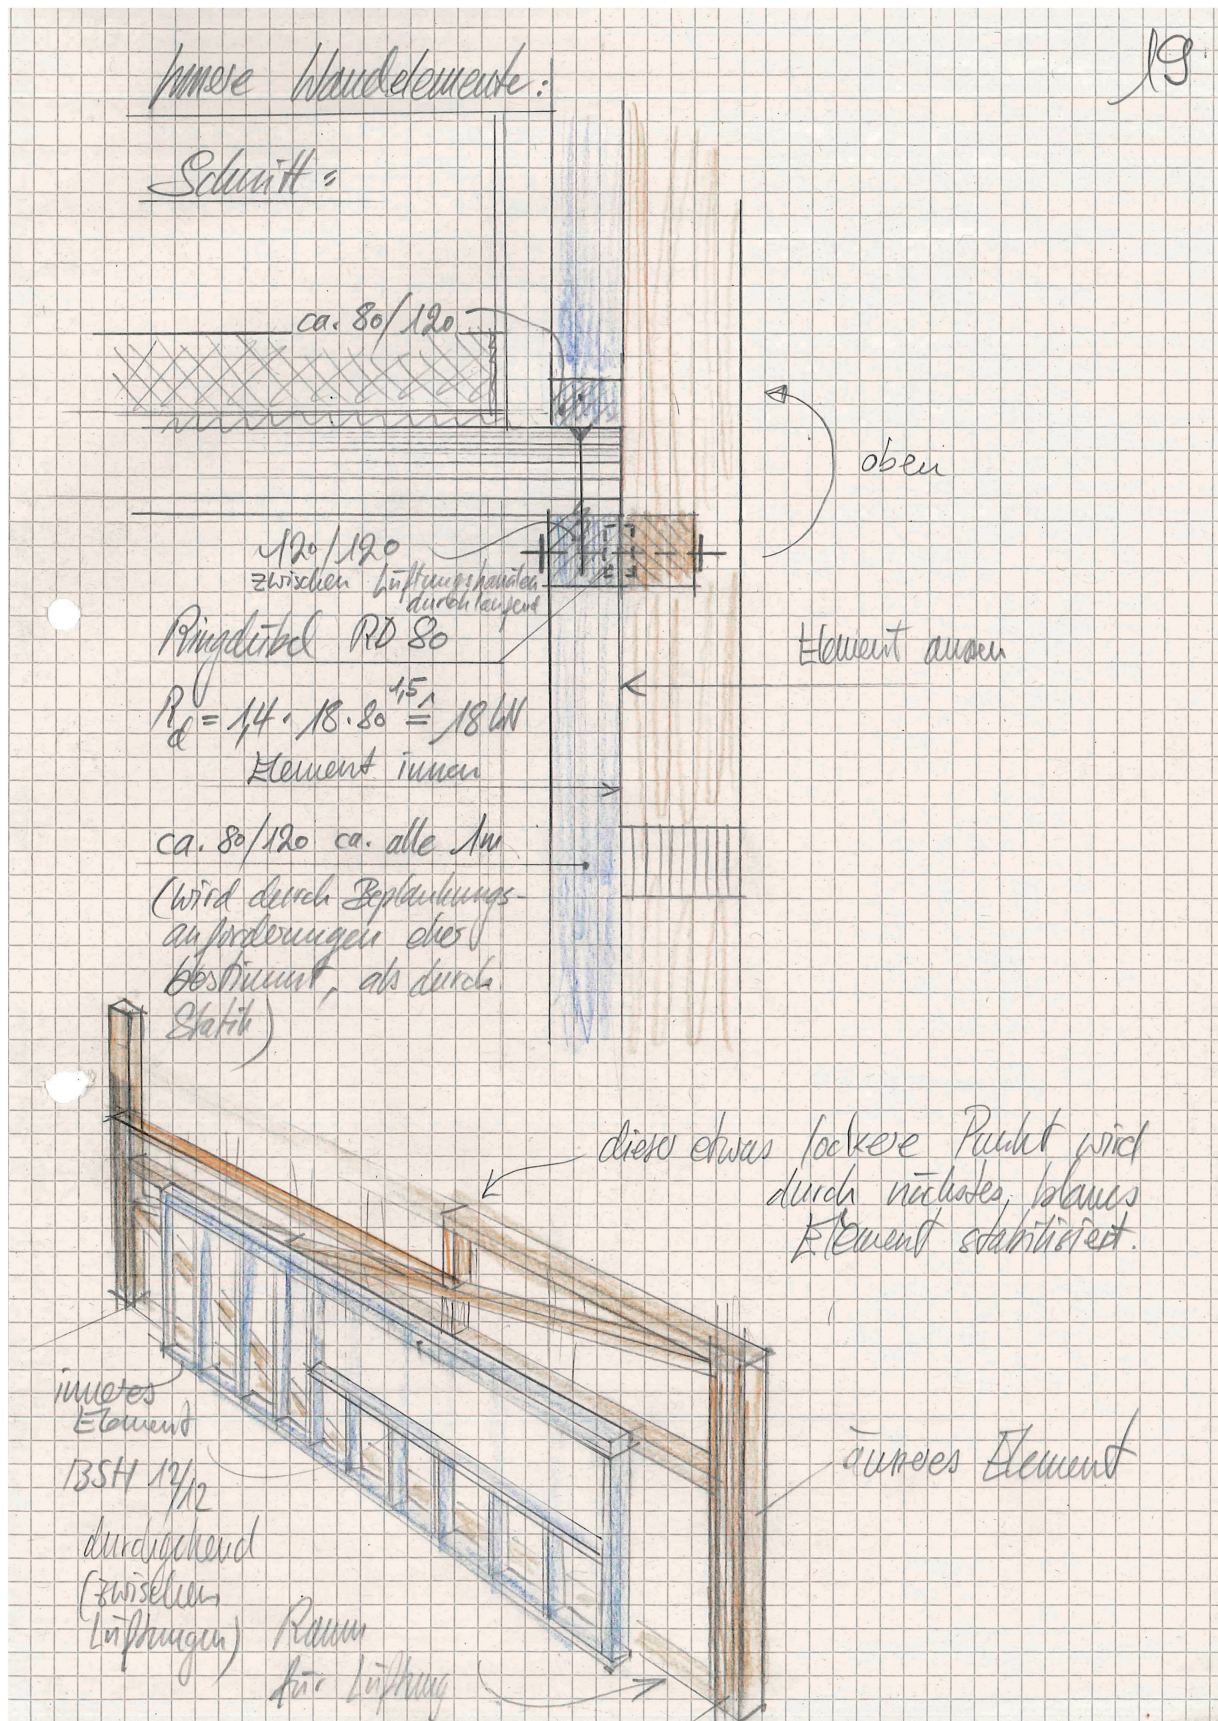 19.
Innere Wandelemente:
Schnitt:
ca. 80/120
oben
120/120
zwischen Lüftungskanälen
durchlaufend
Ringdübel RD 80
Element aussen
R_d = 1,4 · 18 · 80^1,5 ≙ 18 kN
Element innen
ca. 80/120 ca. alle 1m
(wird durch Beplankungs-
anforderungen eher
bestimmt, als durch
Statik)
dieser etwas lockere Punkt wird
durch nächstes, blaues
Element stabilisiert.
inneres
Element
äusseres Element
BSH 12/12
durchgehend
(zwischen
Lüftungen)
Raum
für Lüftung